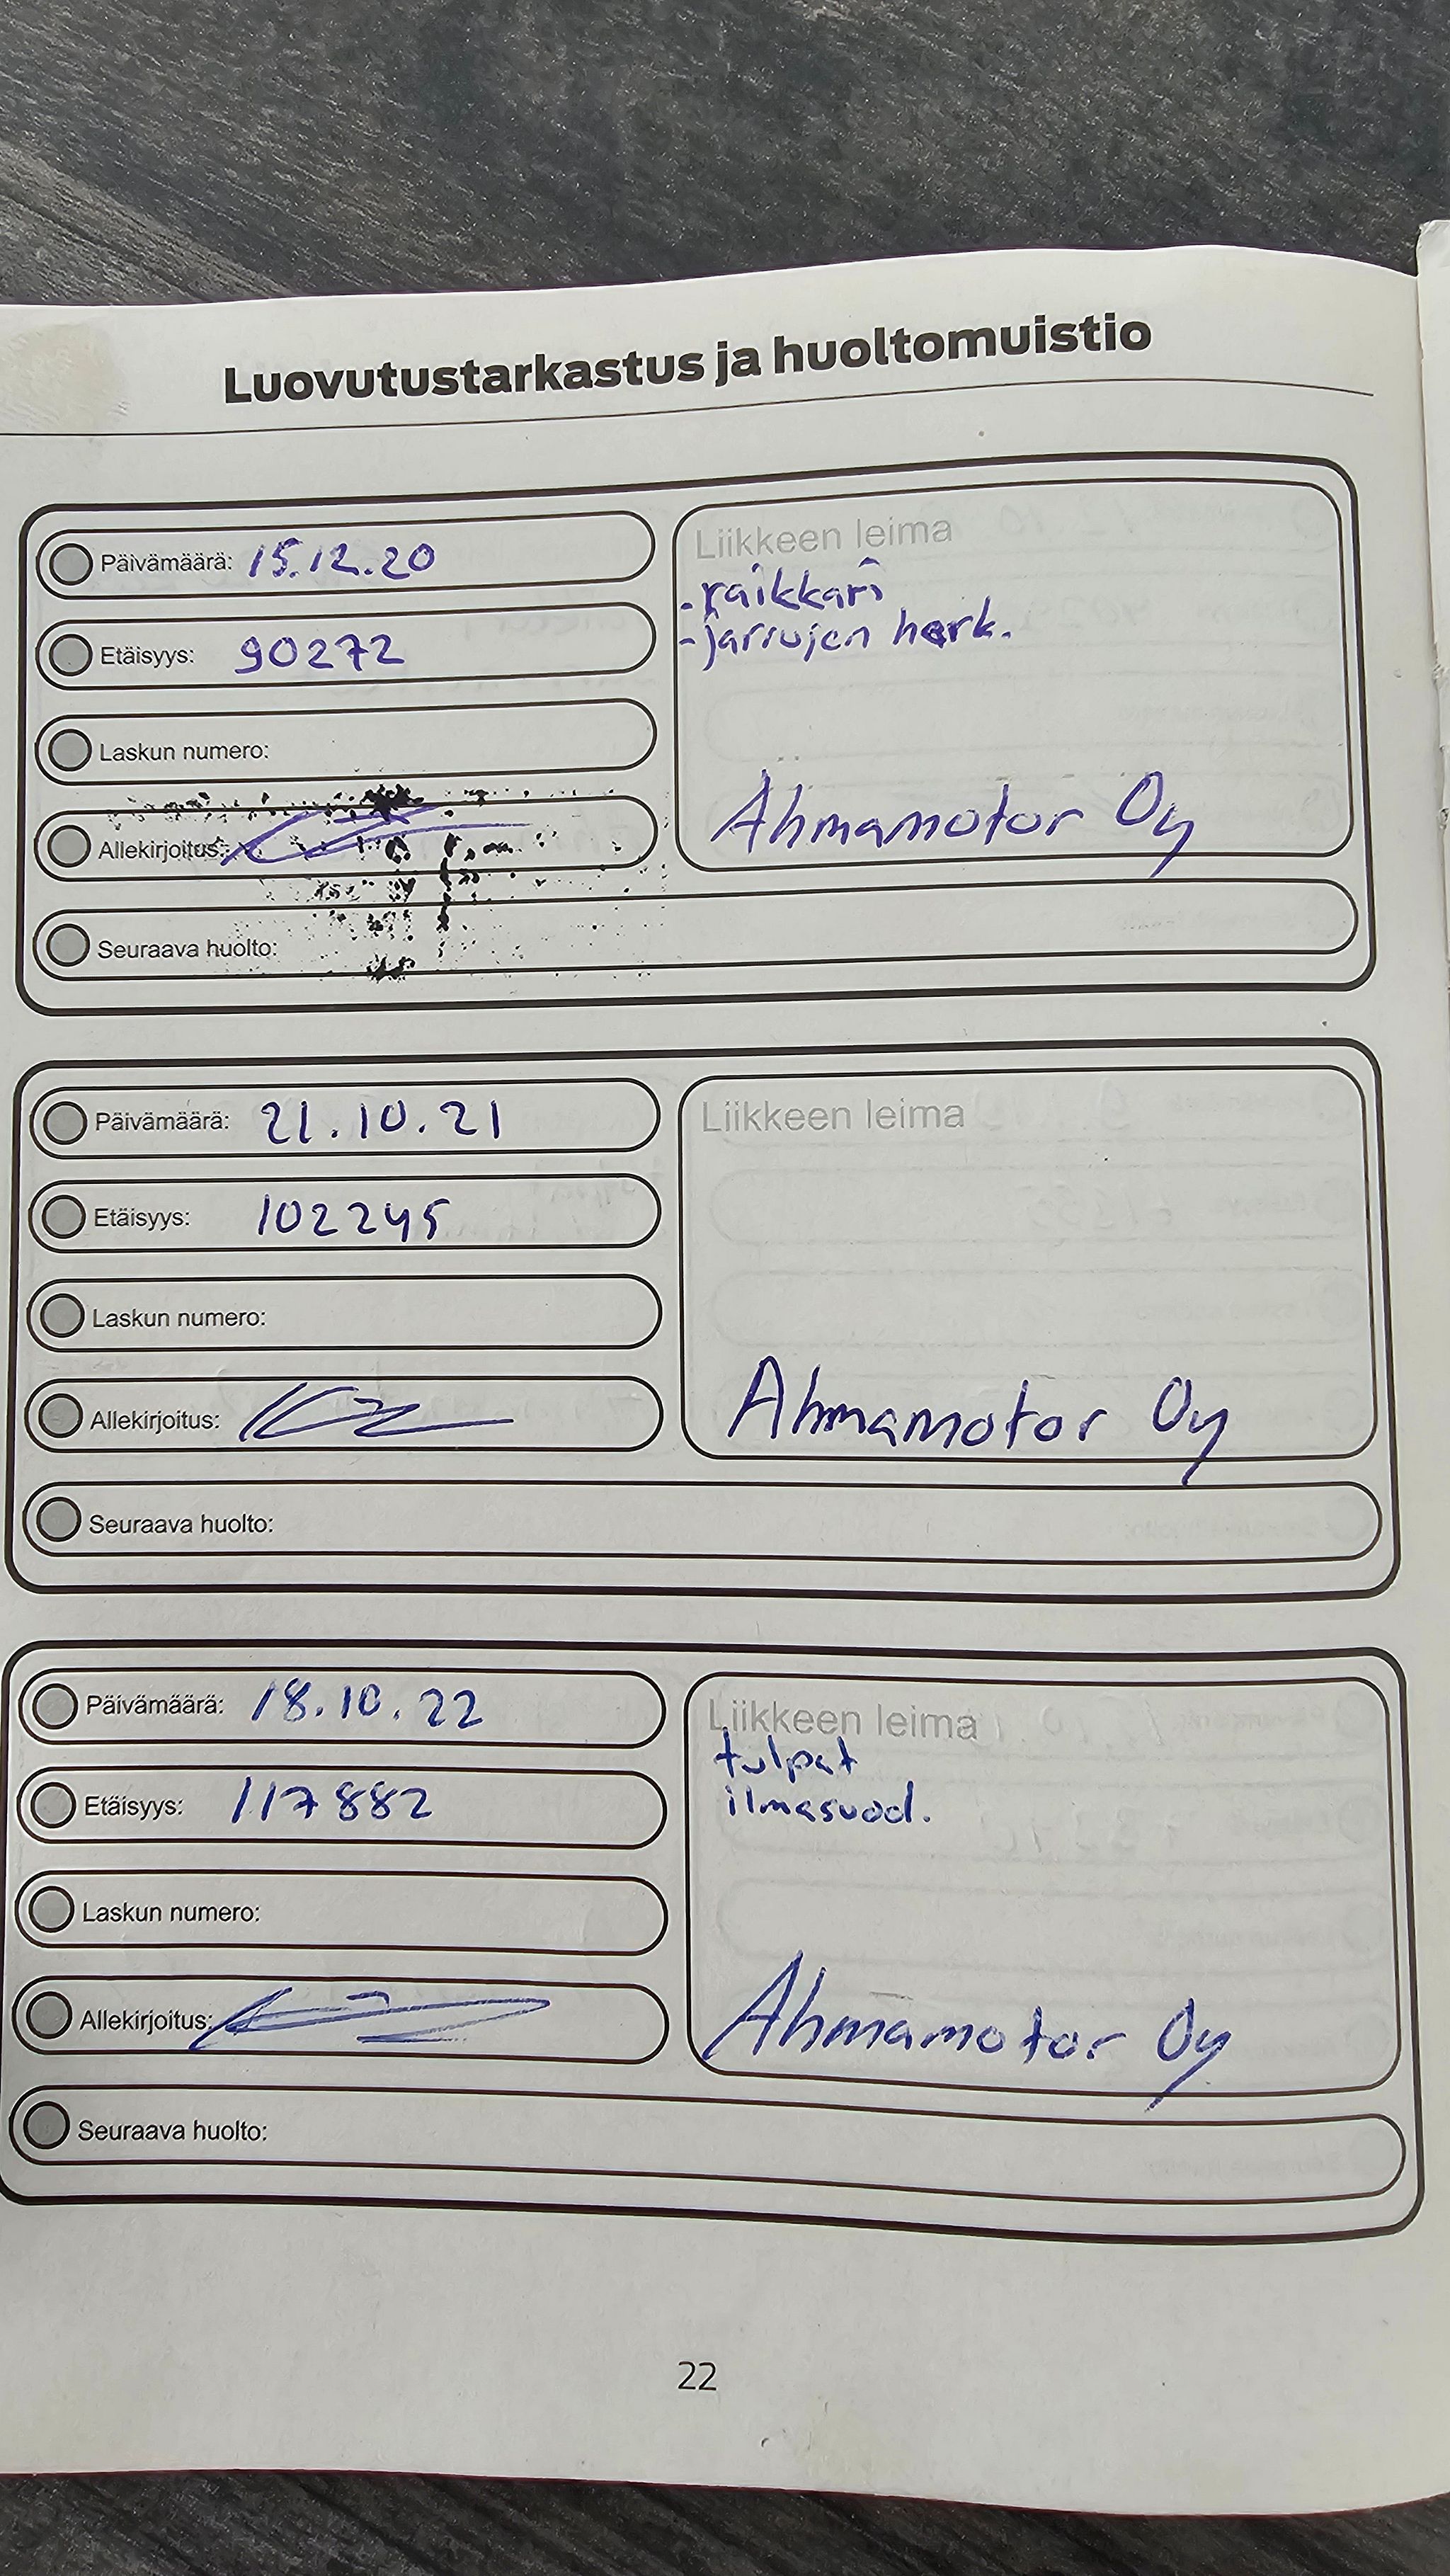 Luovutustarkastus ja huoltomuistio
Päivämäärä: 15.12.20
Etäisyys: 90272
Laskun numero:
Allekirjoitus:
Seuraava huolto:
Liikkeen leima
- raikkari
- jarrujen herk.
Ahmamotor Oy
Päivämäärä: 21.10.21
Etäisyys: 102245
Laskun numero:
Allekirjoitus:
Seuraava huolto:
Liikkeen leima
Ahmamotor Oy
Päivämäärä: 18.10.22
Etäisyys: 117882
Laskun numero:
Allekirjoitus:
Seuraava huolto:
Liikkeen leima
tulpat
ilmasuod.
Ahmamotor Oy
22